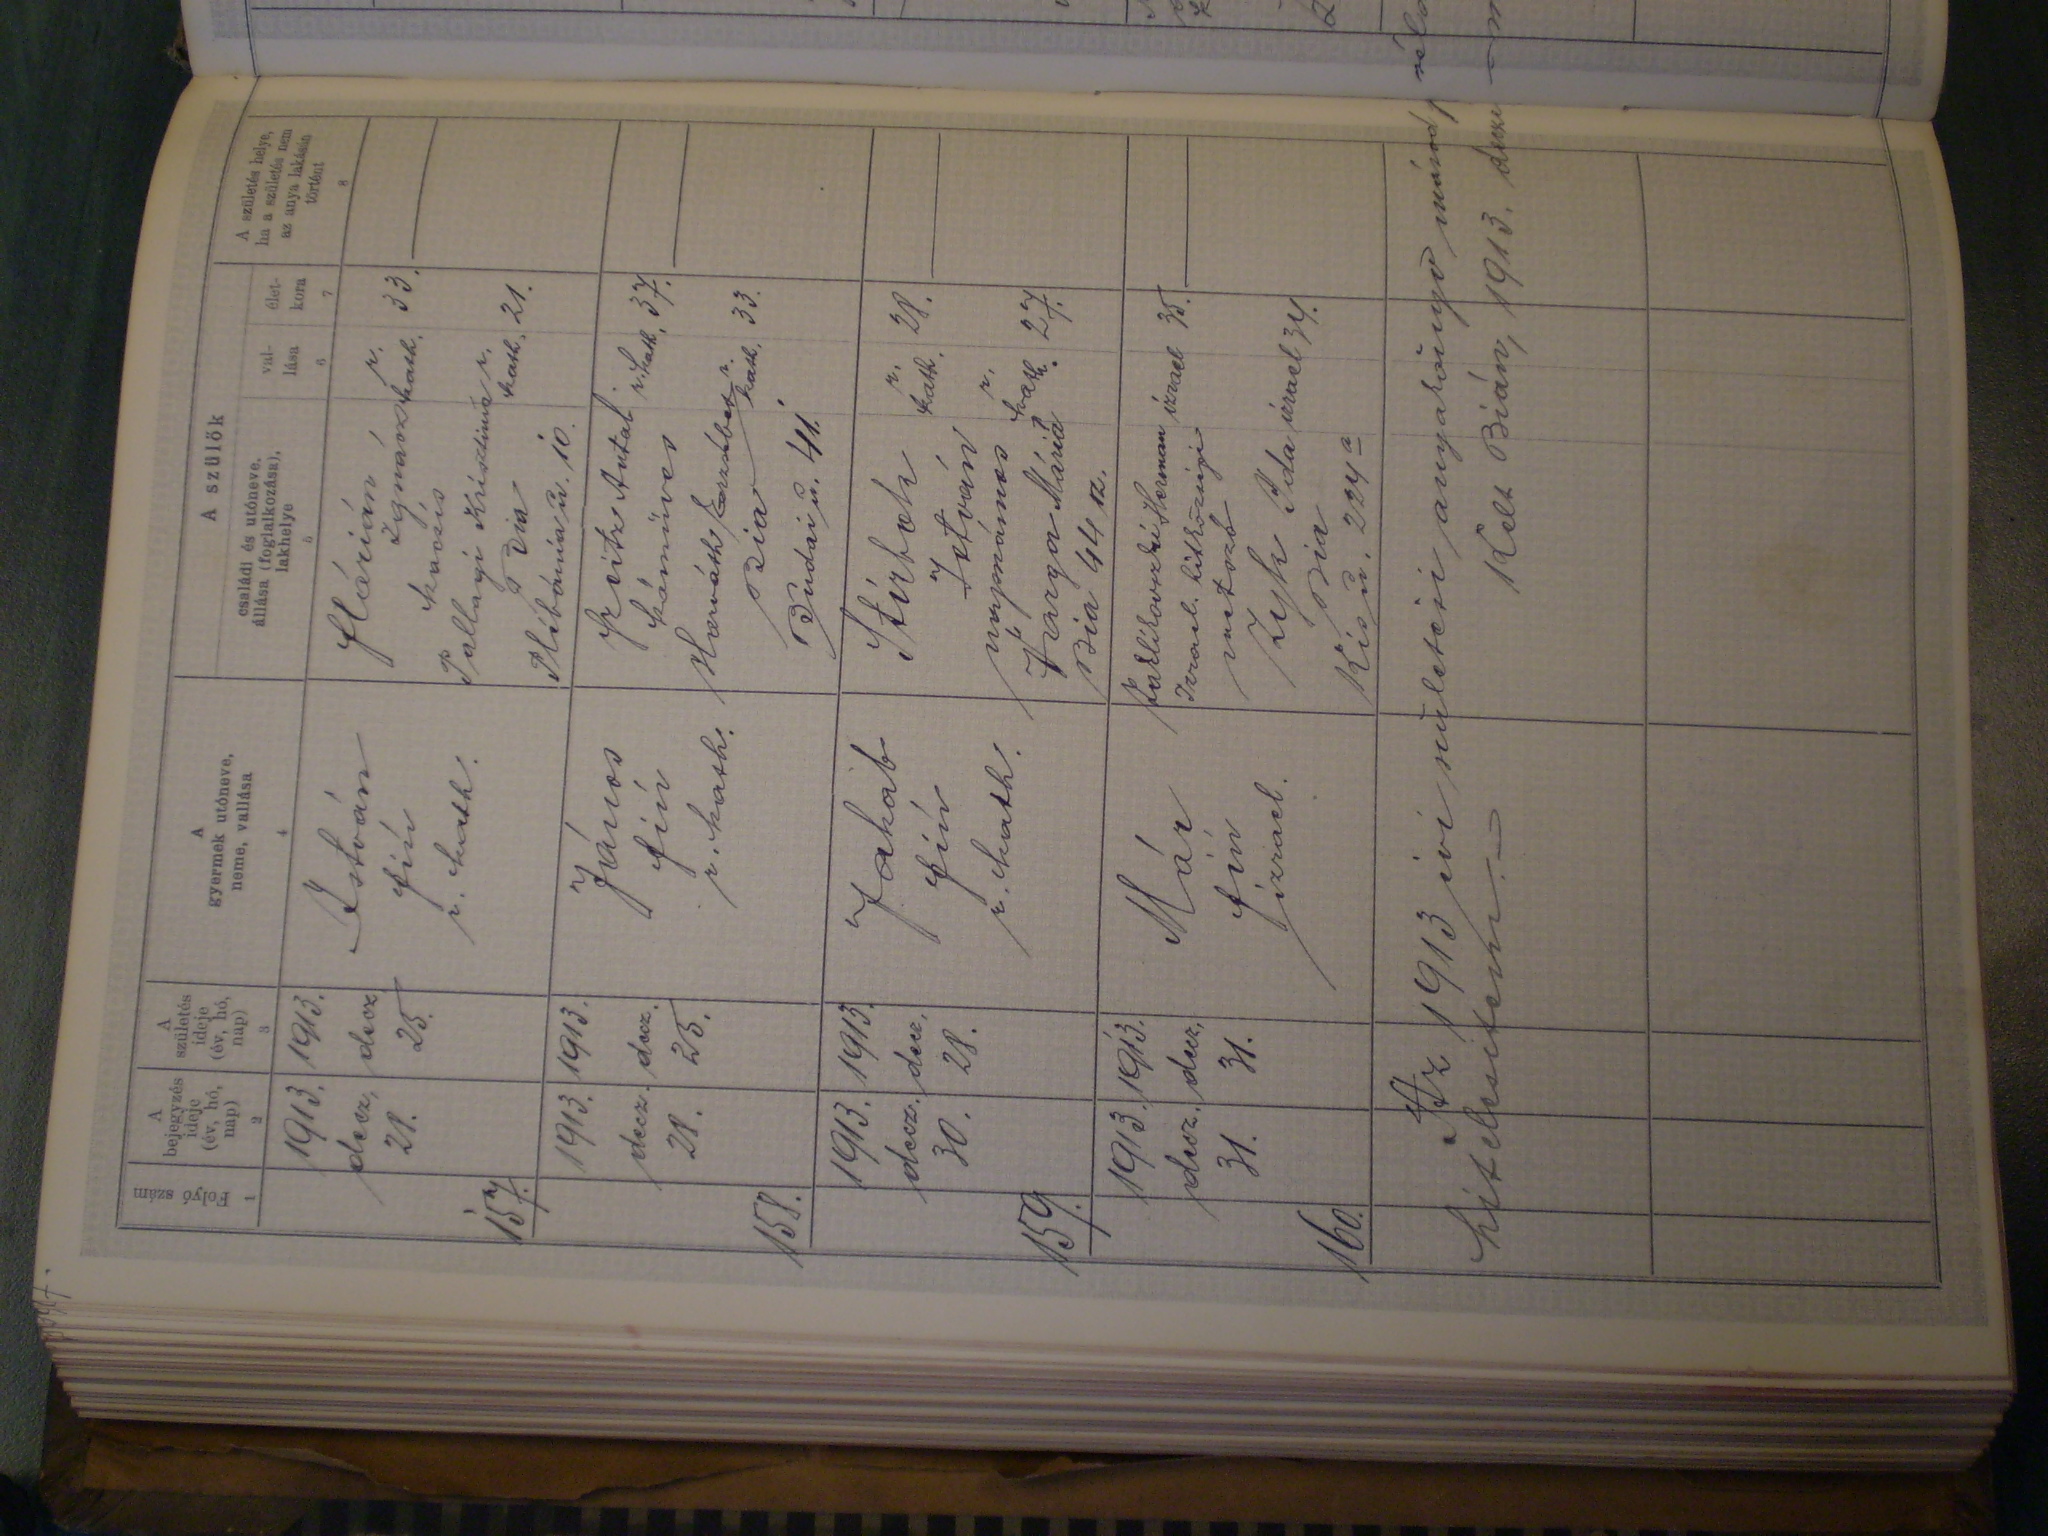 Folyó szám
1
A
bejegyzés
ideje
(év, hó,
nap)
2
A
születés
ideje
(év, hó,
nap)
3
A
gyermek utóneve,
neme, vallása
4
A szülők
családi és utóneve,
állása (foglalkozása),
lakhelye
5
val-
lása
6
élet-
kora
7
A születés helye,
ha a születés nem
az anya lakásán
történt
8
157.
1913.
decz.
28.
1913.
decz
25.
István
fiú
r. kath.
Flórián
Ignácz
r.
kath.
33.
kocsis
Pallagi Krisztina
r.
kath.
21.
Bia
Plébánia u. 10.
158.
1913.
decz.
28.
1913.
decz.
25.
János
fiú
r. kath.
Antal
r. kath.
37.
kőműves
Horváth Erzsébet
r.
kath.
33.
Bia
Budai u. 411.
159.
1913.
decz.
30.
1913.
decz.
28.
Jakab
fiú
r. kath.
István
r.
kath.
28.
napszámos
Varga Mária
r.
kath.
27.
Bia 44 sz.
160.
1913.
decz.
31.
1913.
decz.
31.
Mór
fiú
izrael.
Herman
izrael
35.
Izrael. hitközségi
metsző
Ida
izrael
34.
Bia
Kis u. 224 a
Az 1913 évi születési anyakönyv másod
hitelesitem.
Kelt Bián, 1913.